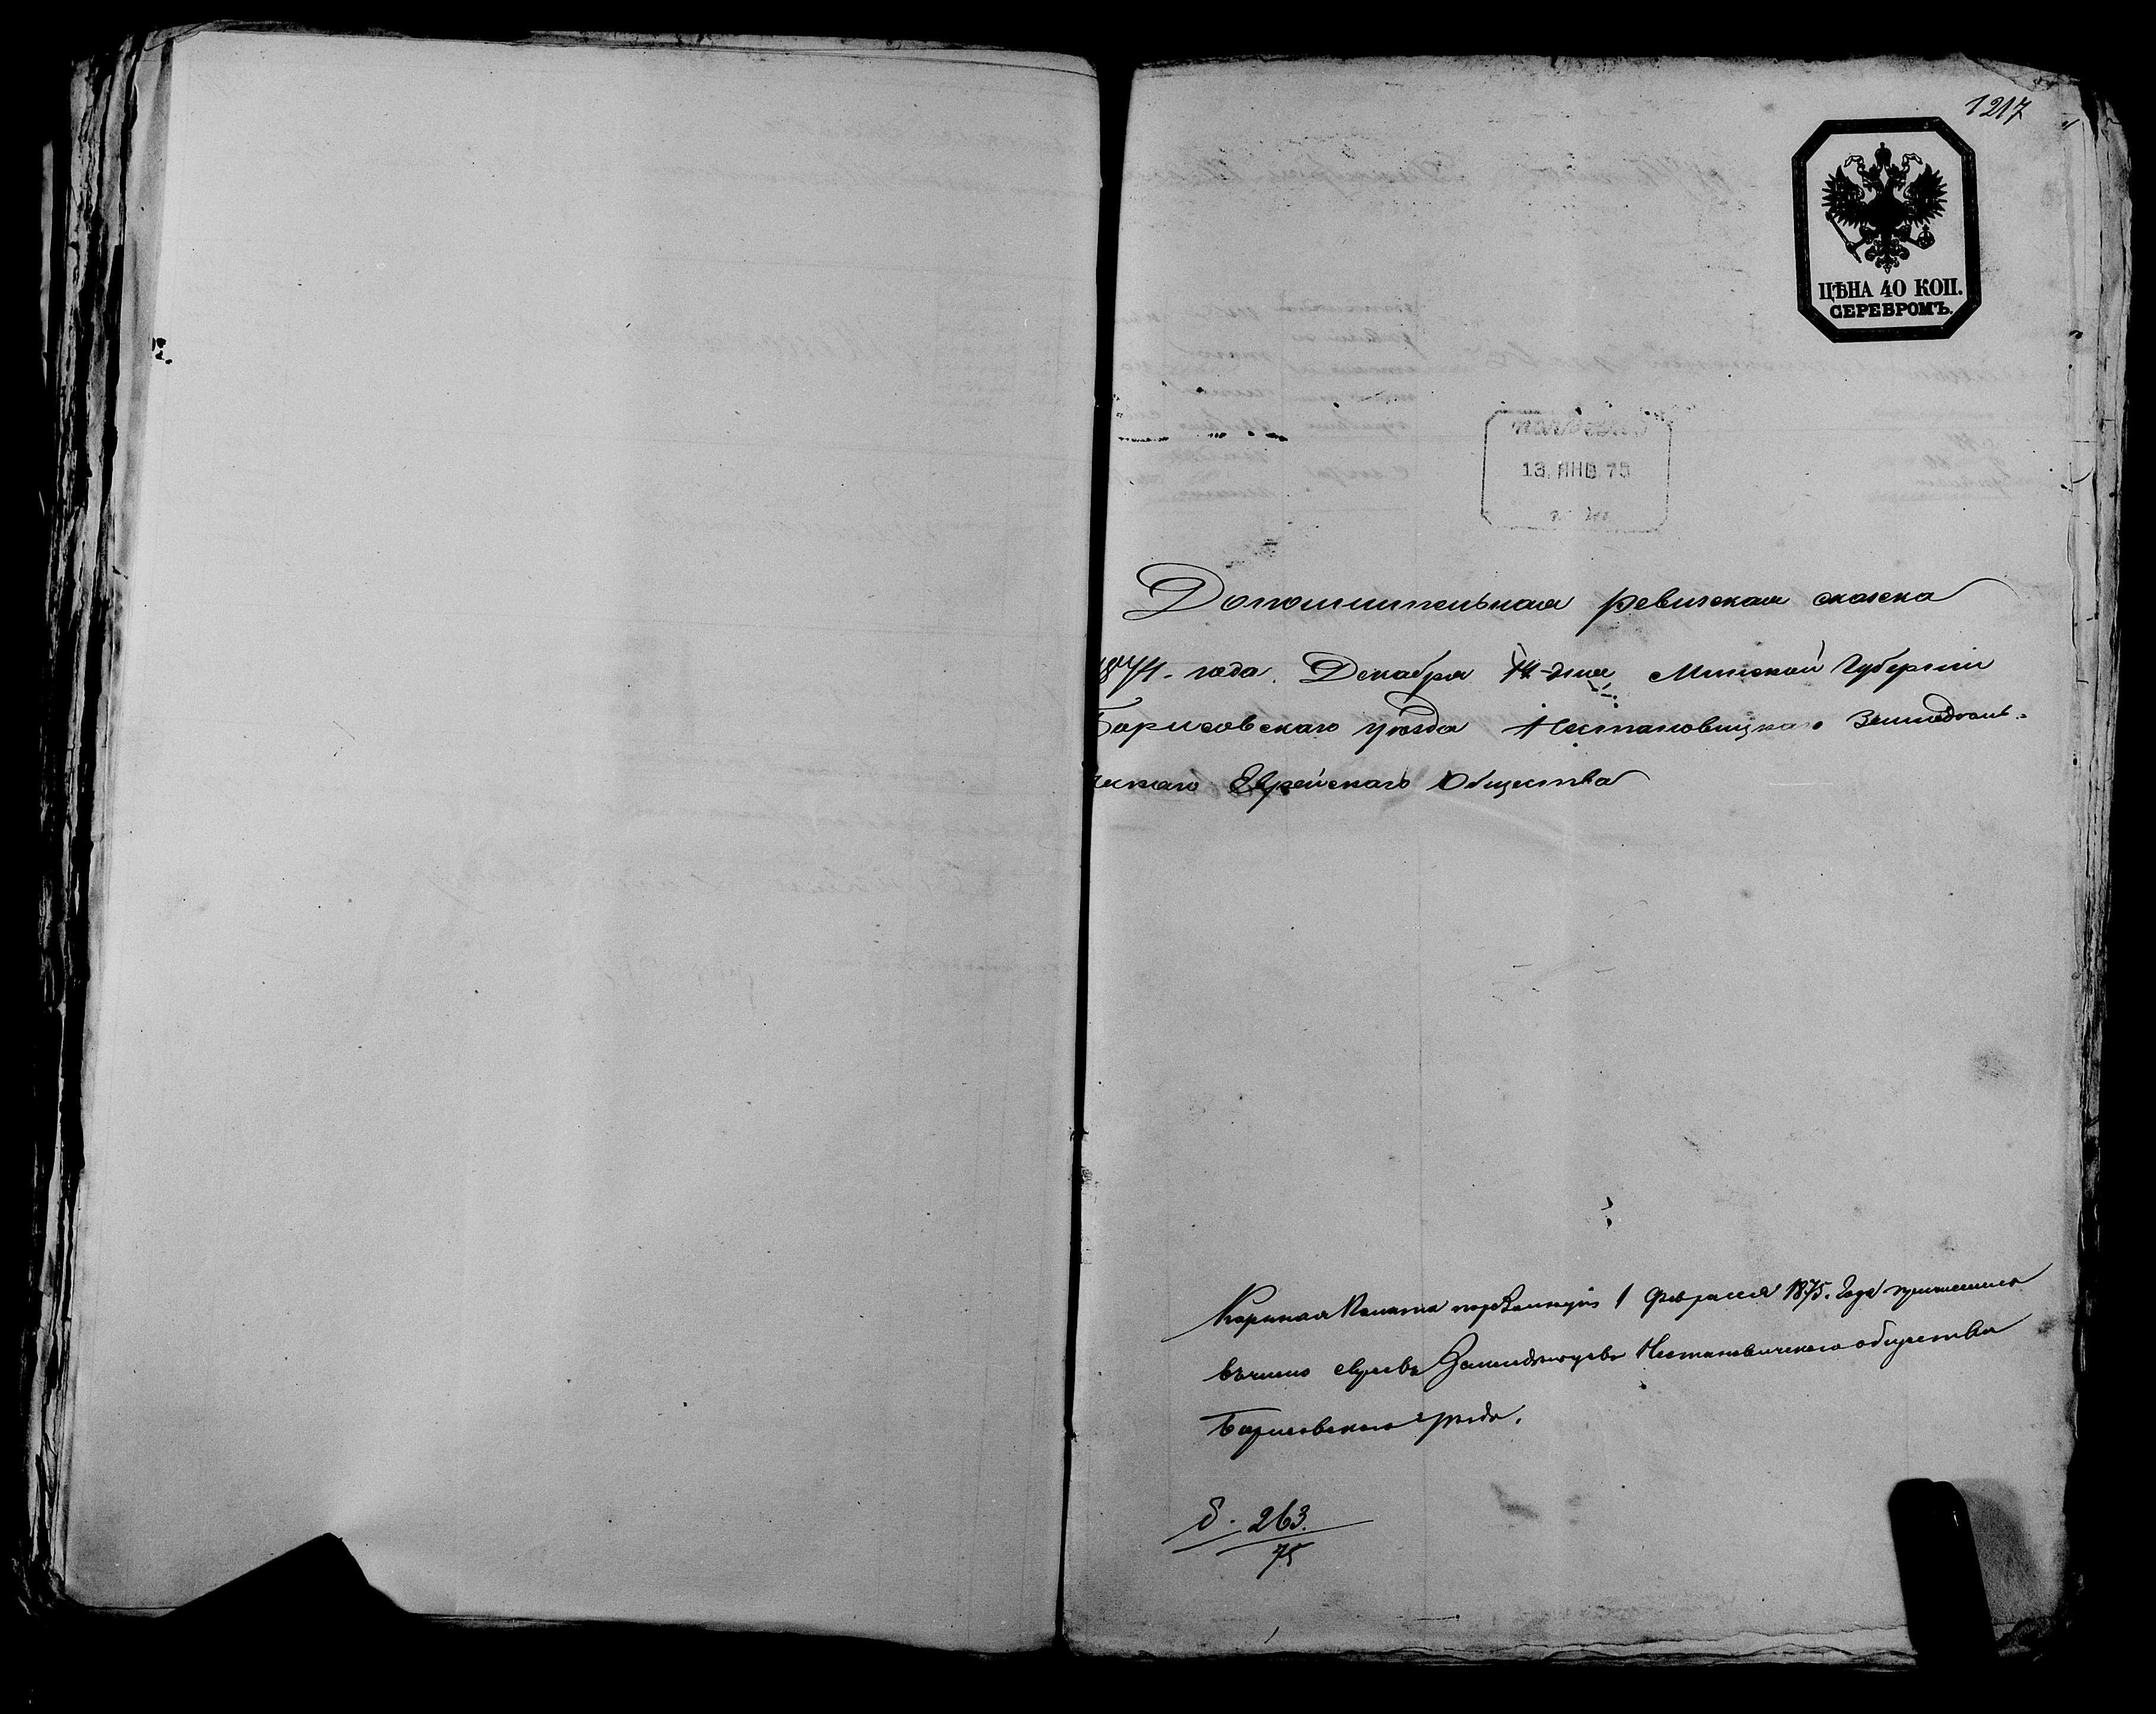 1217
ЦѢНА 40 КОП.
СЕРЕБРОМЪ.
13 ЯНВ 75
Дополнительная ревизская сказка
1874. года. Декабря 14 дня Минской Губерніи
Борисовскаго уѣзда Нестановицкаго Земледѣль-
ческаго Еврейскаго Общества
Казенная Палата 1 Февраля 1875. Года причислила
въ число Евреевъ Земледѣльцевъ Нестановичскаго общества
Борисовскаго уѣзда.
263.
75